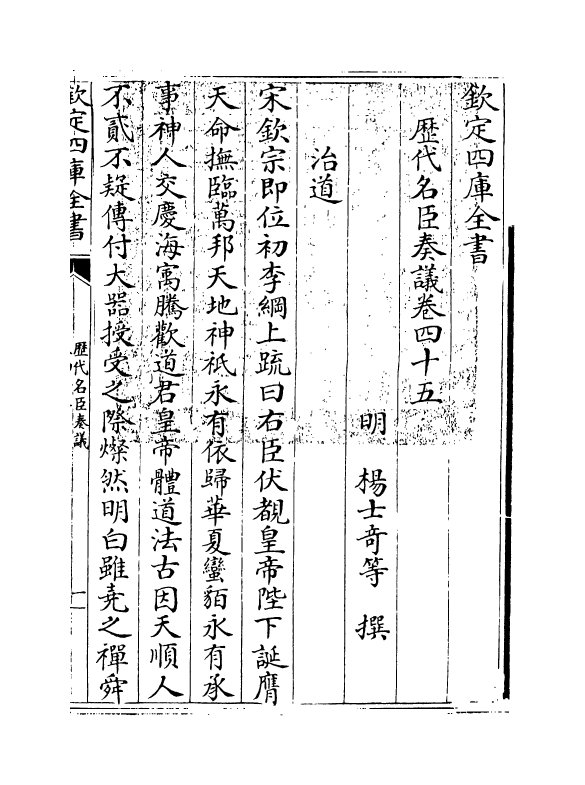 欽定四庫全書
歴代名臣奏議卷四十五
明 楊士奇等 撰
治道
宋欽宗即位初李綱上䟽曰右臣伏覩皇帝陛下誕膺
天命撫臨萬邦天地神祇永有依歸華夏蠻貊永有承
事神人交慶海㝢騰歡道君皇帝體道法古因天順人
不貳不疑傳付大器授受之際燦然明白雖堯之禪舜
欽定四庫全書
歴代名臣奏議